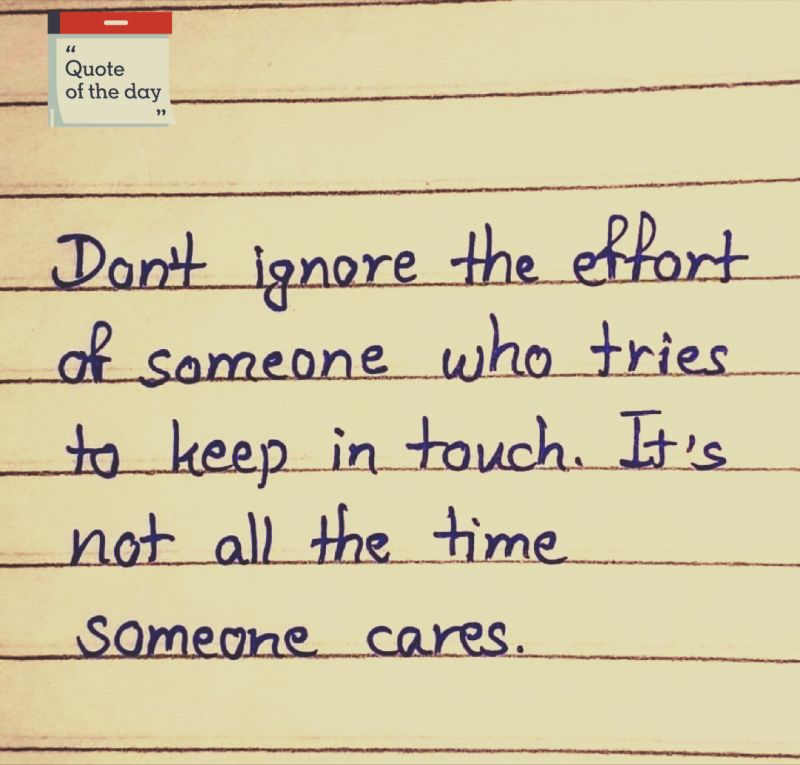 “
Quote
of the day
”
Don't ignore the effort
of someone who tries
to keep in touch. It's
not all the time
someone cares.